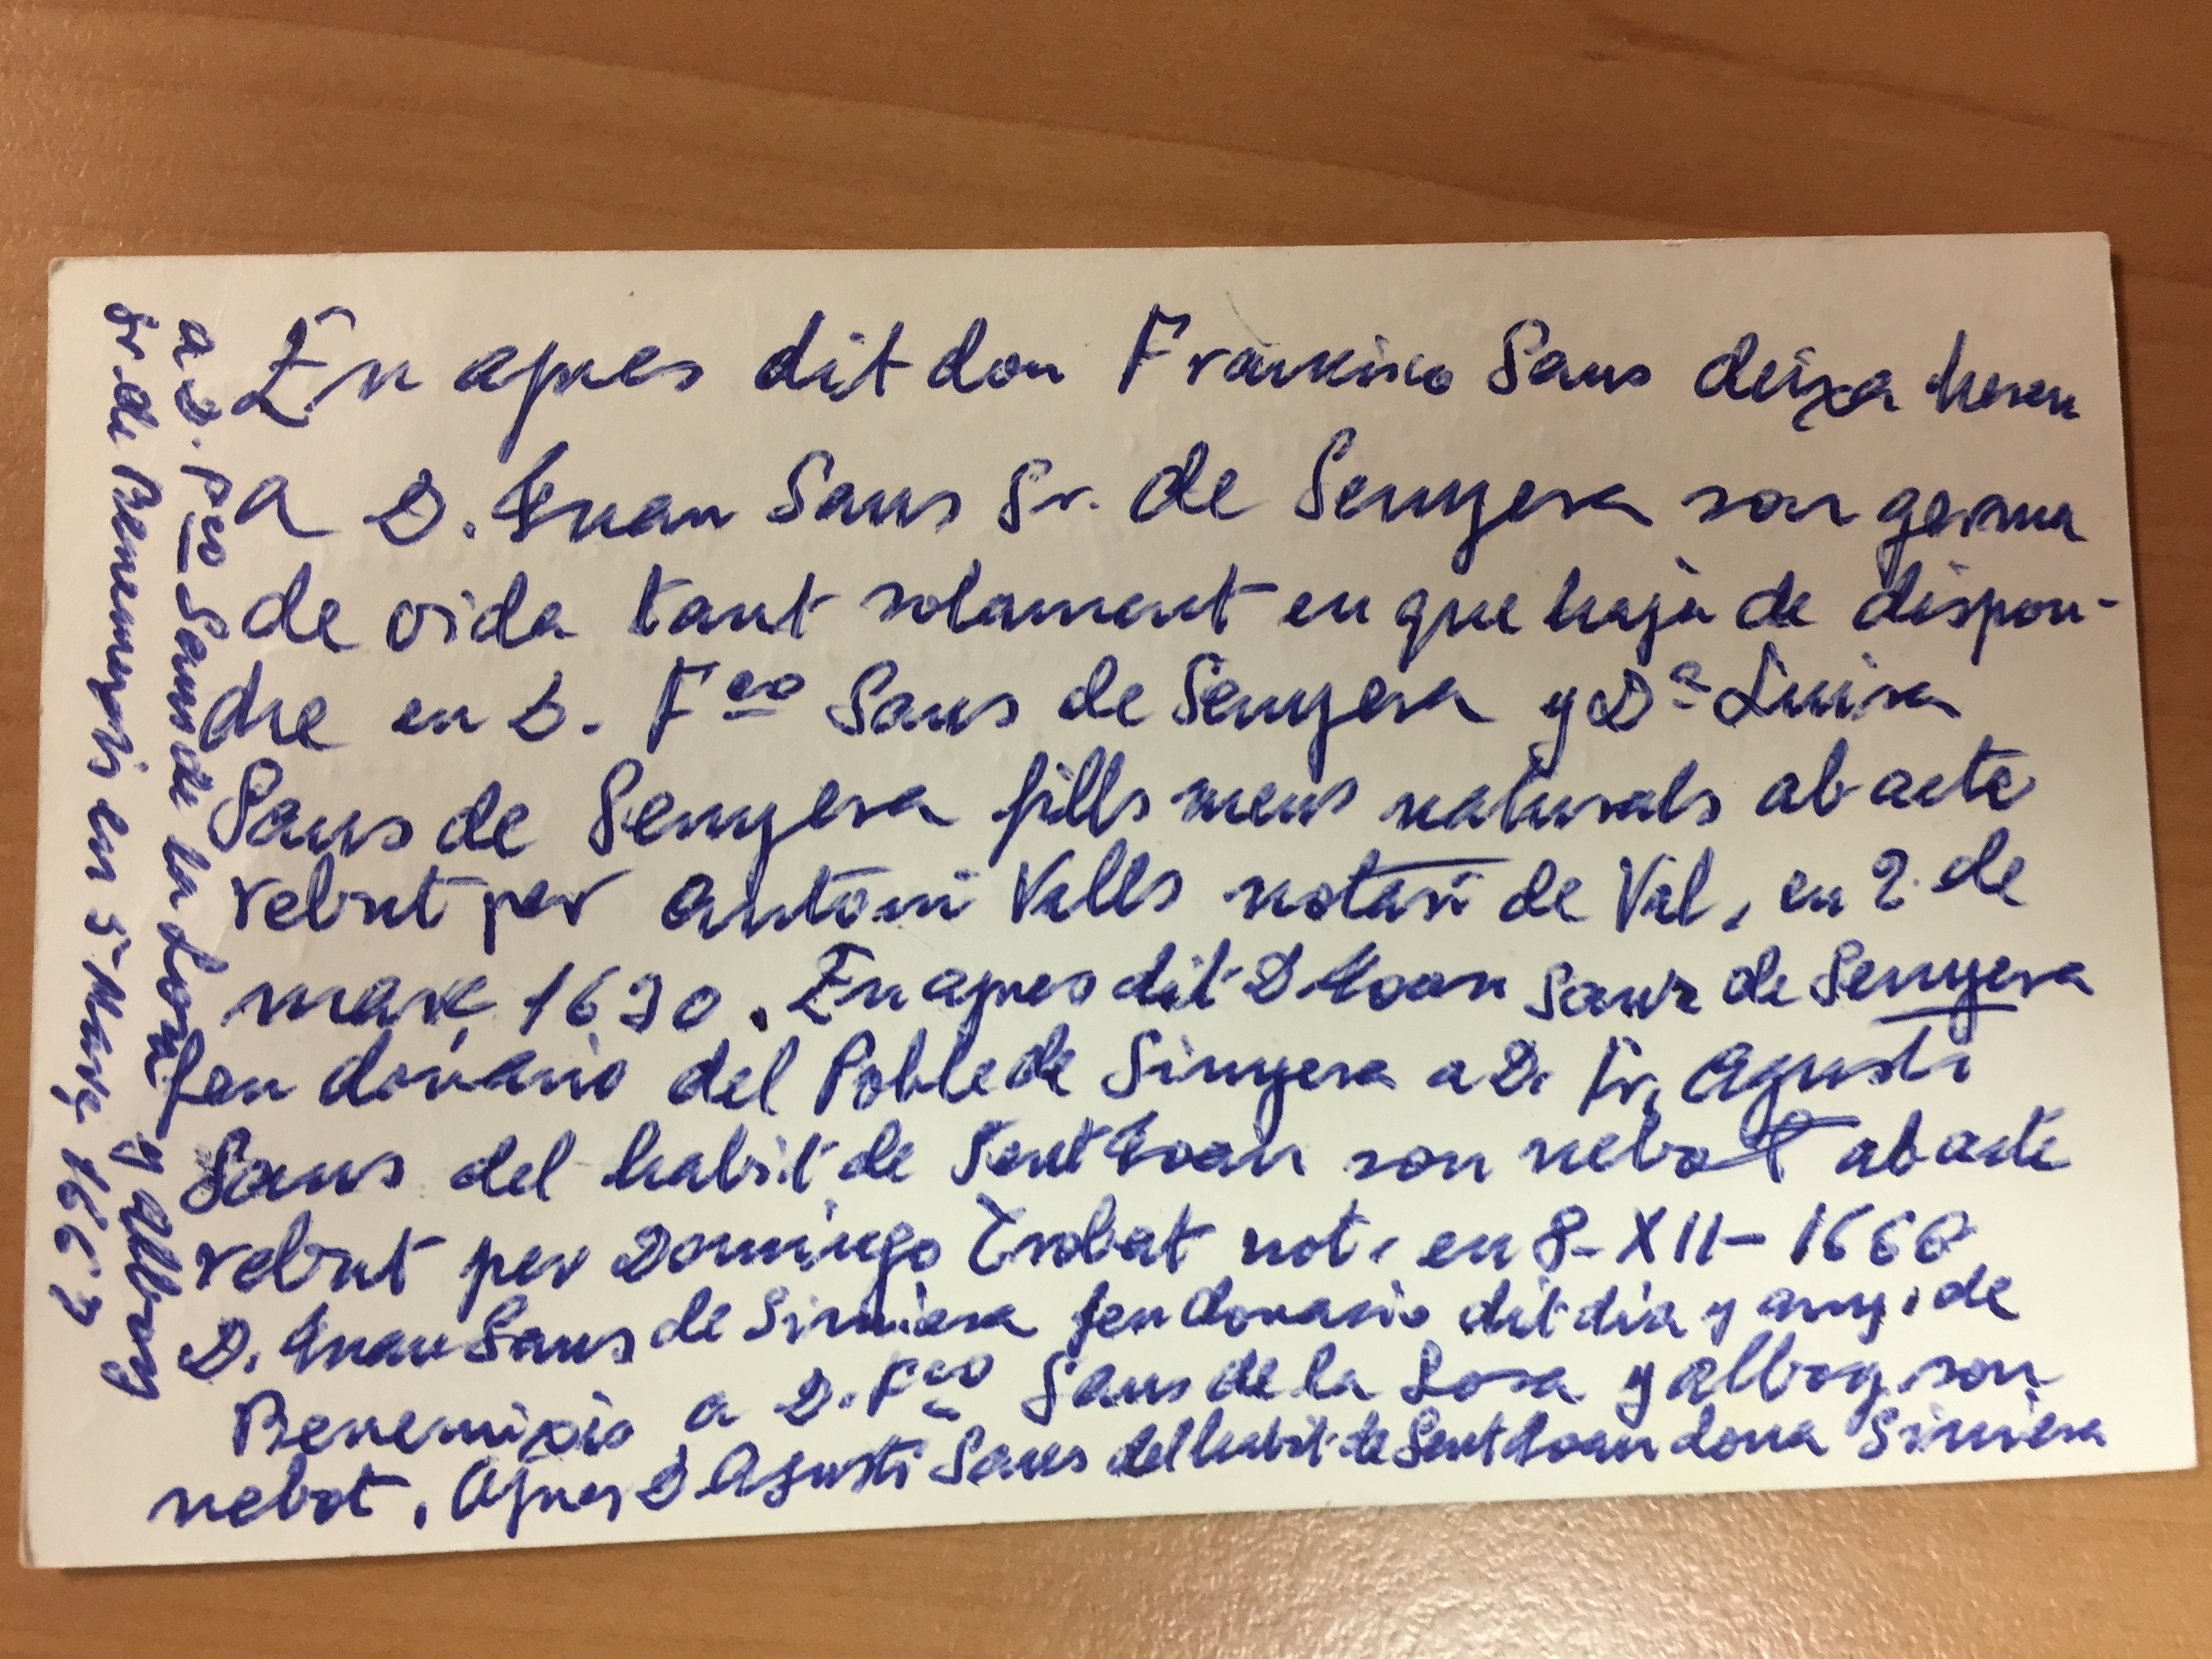 En apres dit don Francisco Sans deixa hereu
a D. Juan Sans Sr. de Senyera son germa
de vida tant solament en que haja de dispon-
dre en D. Fco Sans de Senyera y Dª Luisa
Sans de Senyera fills meus naturals ab acte
rebut per Antoni Valls notari de Val, en 2 de
març 1630. En apres dit D Joan Sanz de Senyera
feu donasio del Poble de Sinyera a D. Fr. Agusti
Sans del habit de Sent Joan son nebot ab acte
rebut per Domingo Trobat not. en 8-XII-1660
D. Juan Sans de Siniera feu donasio dit dia y any, de
Benemixis a D. Fco Sans de la Losa y Alboy son
nebot. Apres D Agusti Sans del habit de Sent Joan dona Siniera
a D. Fco Sans de la Losa y Alboy
Sr. de Benemexis en 5 Març 1667